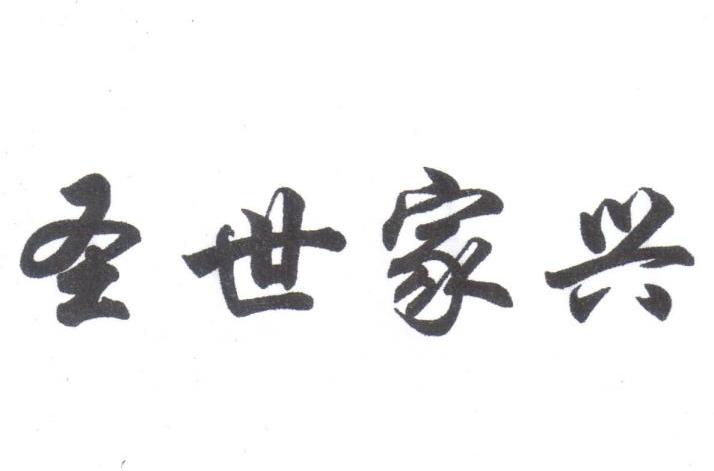 圣世家兴